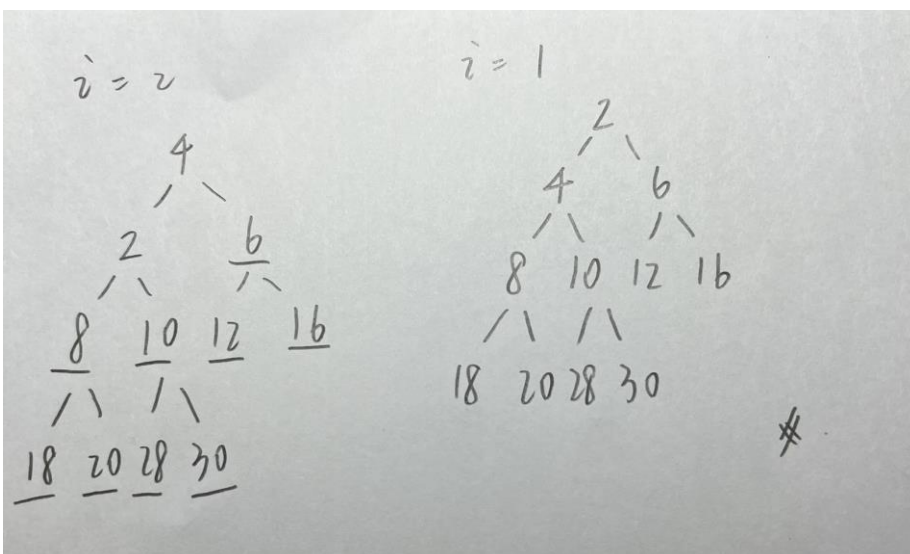 i = 2
4
2 6
8 10 12 16
18 20 28 30
i = 1
2
4 6
8 10 12 16
18 20 28 30
#